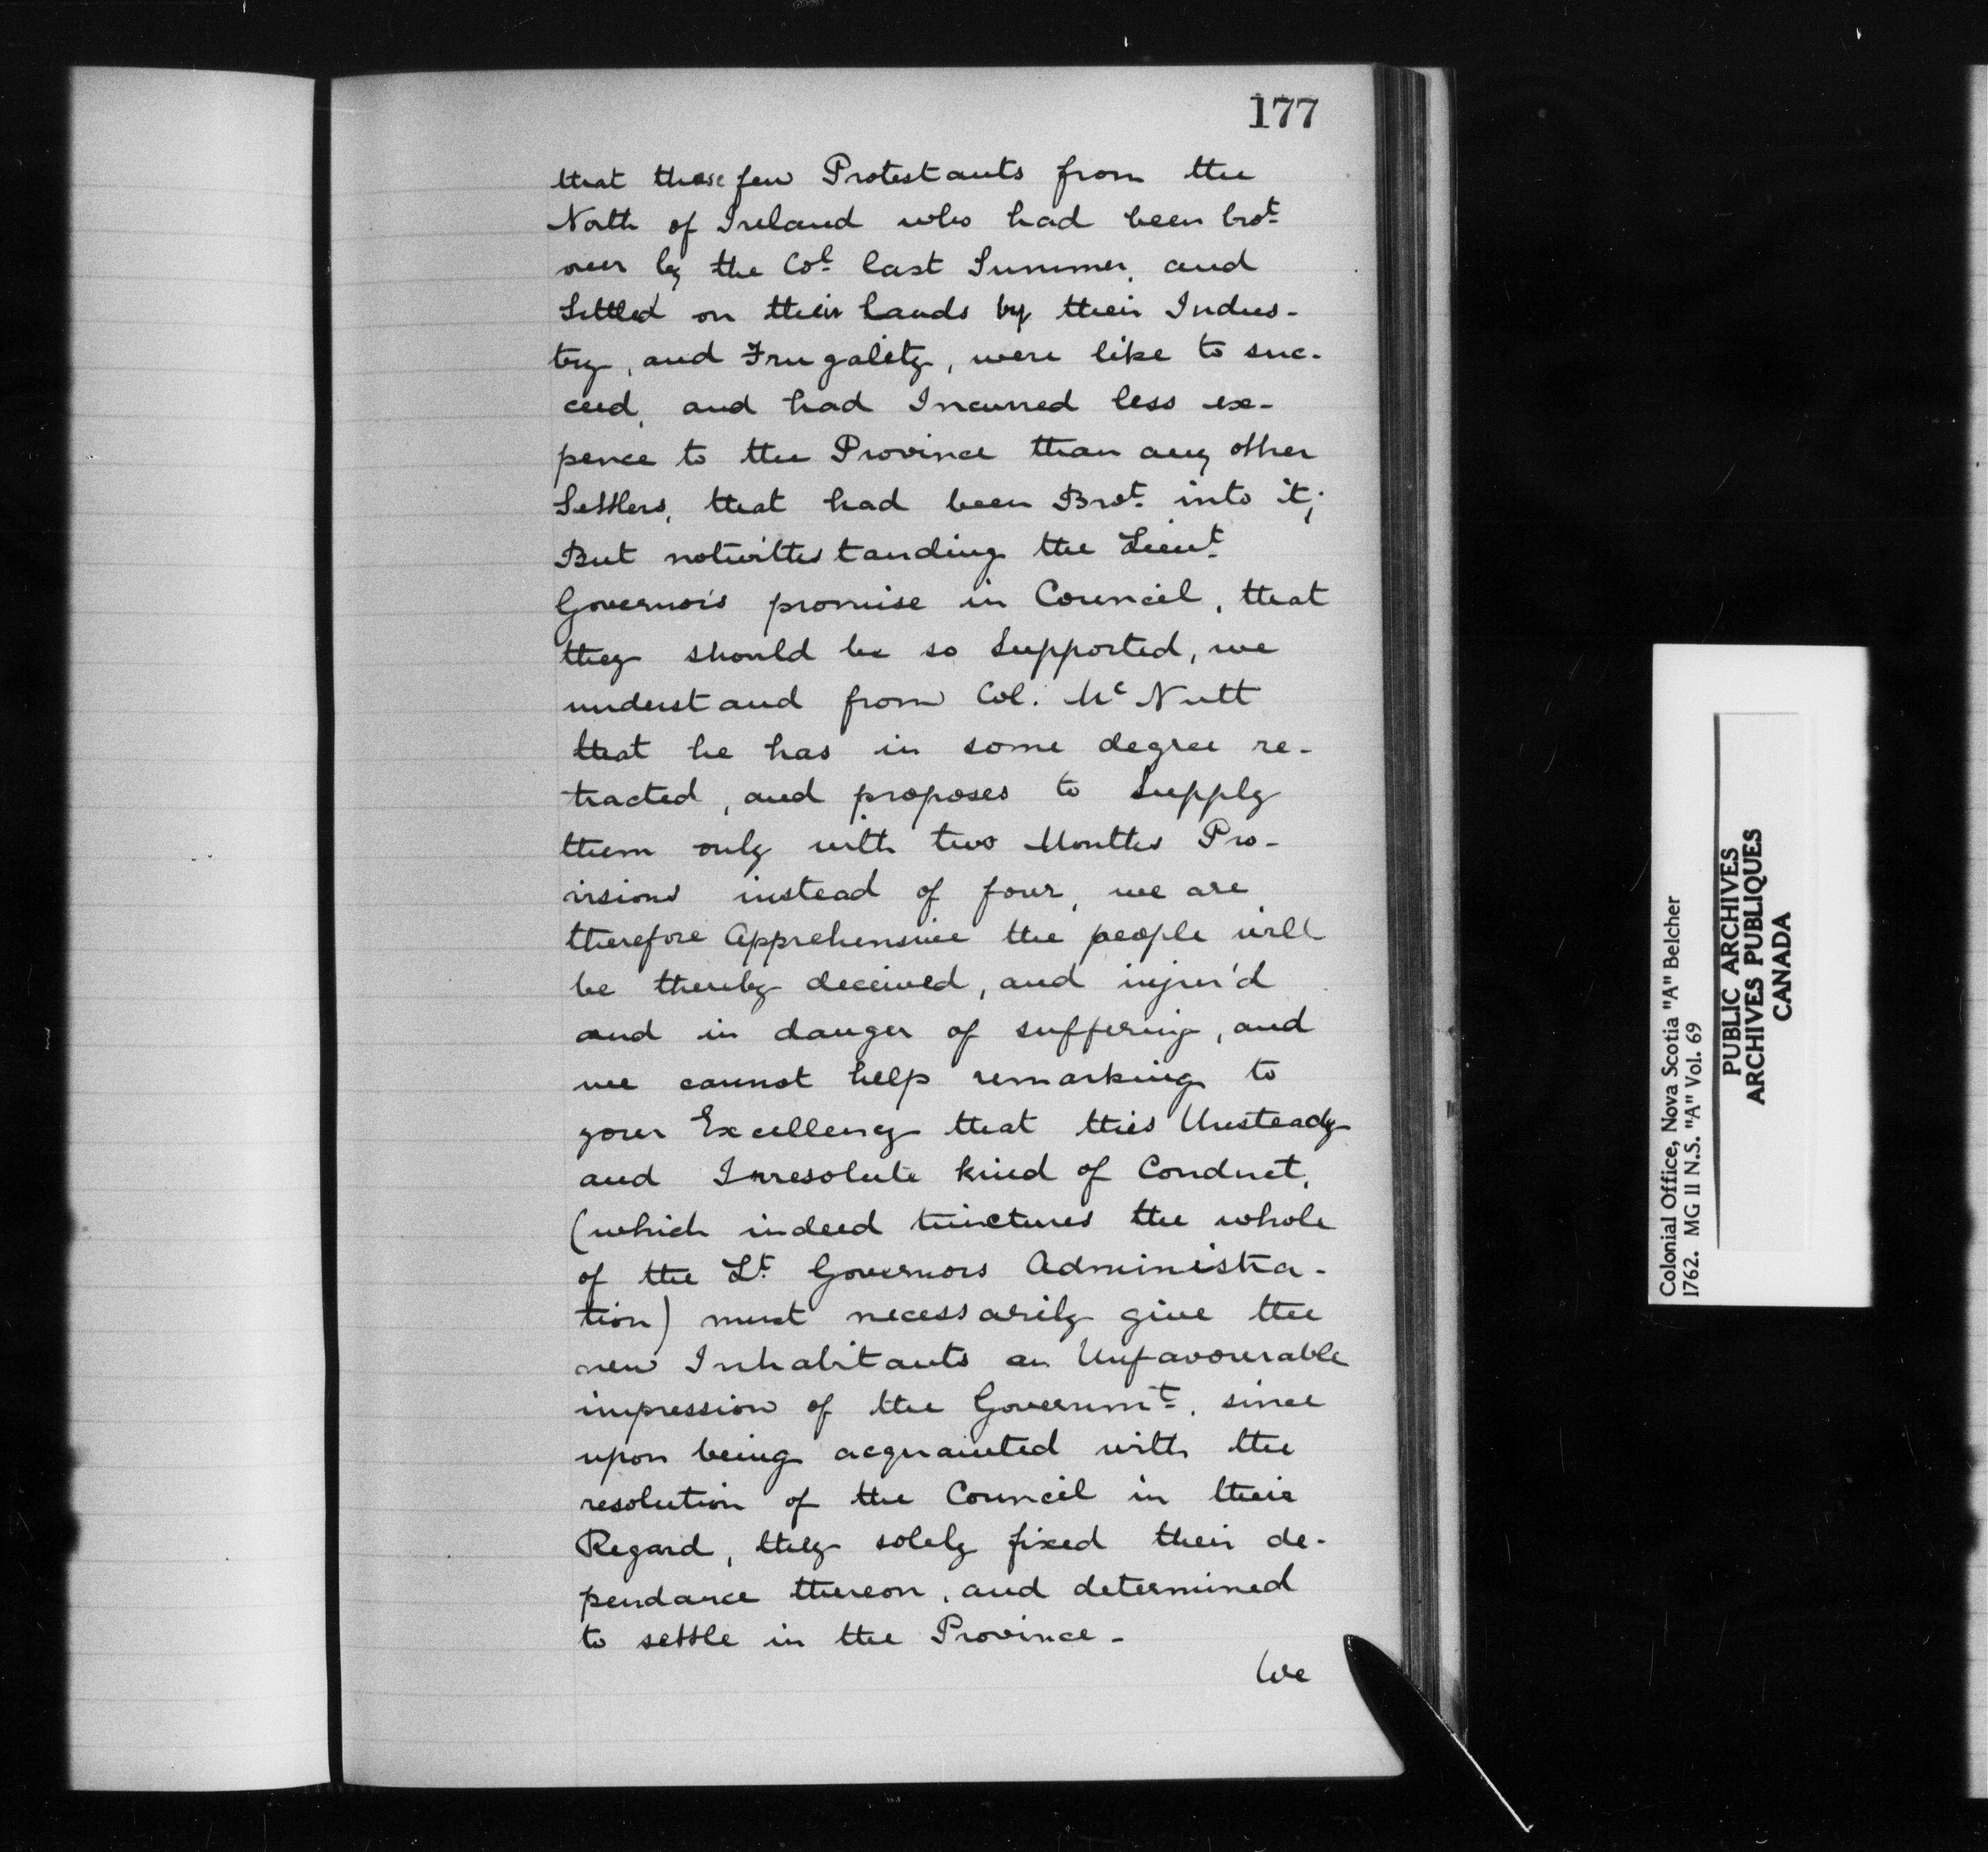 177
that those few Protestants from the
North of Ireland who had been brot
over by the Col. last Summer, and
Settled on their Lands by their Indus-
try, and Frugality, were like to suc-
ceed, and had Incurred less ex-
pence to the Province than any other
Settlers, that had been Brot. into it;
But notwithstanding the Lieut.
Governor's promise in Council, that
they should be so Supported, we
understand from Col. Mc Nutt
that he has in some degree re-
tracted, and proposes to Supply
them only with two Months Pro-
visions instead of four, we are
therefore Apprehensive the people will
be thereby deceived, and injur'd
and in danger of suffering, and
we cannot help remarking to
your Excellency that this Unsteady
and Irresolute kind of Conduct,
(which indeed tinctures the whole
of the Lt. Governors Administra-
tion) must necessarily give the
new Inhabitants an Unfavourable
impression of the Governmt. since
upon being acquainted with the
resolution of the Council in their
Regard, they solely fixed their de-
pendance thereon, and determined
to settle in the Province-
We
Colonial Office, Nova Scotia "A" Belcher
1762. MG II N.S. "A" Vol. 69
PUBLIC ARCHIVES
ARCHIVES PUBLIQUES
CANADA